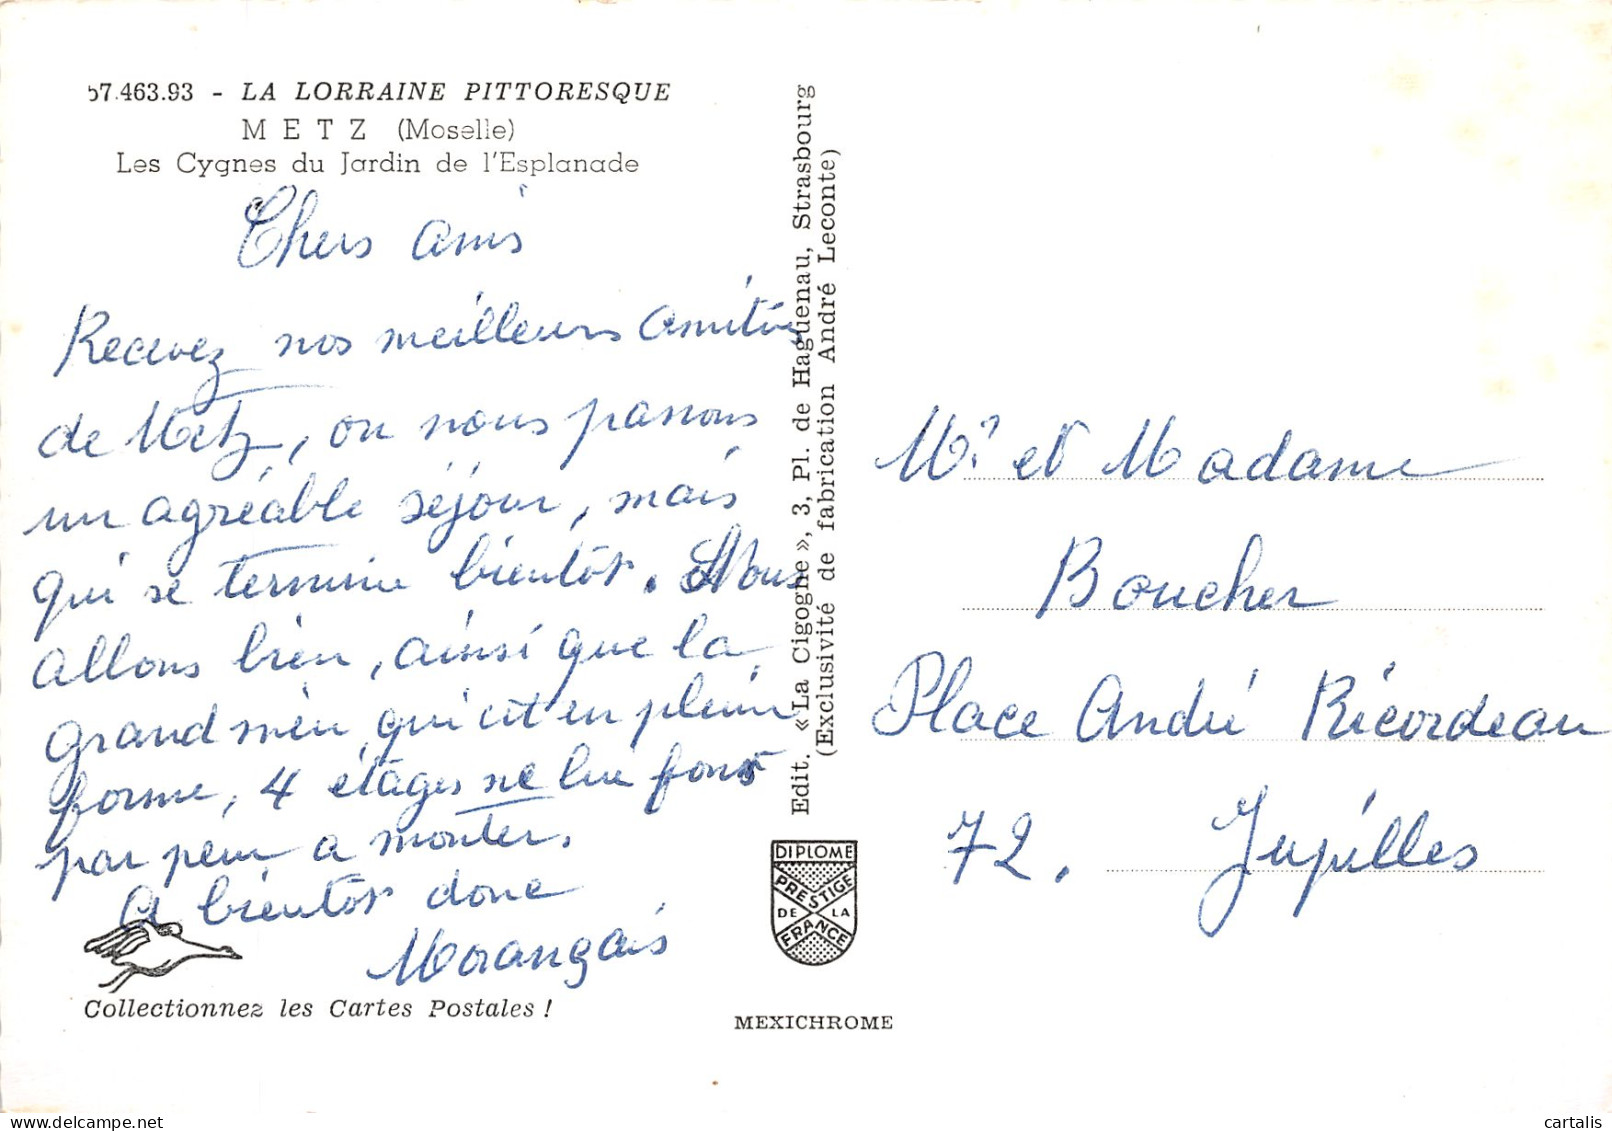 57.463.93 - LA LORRAINE PITTORESQUE
METZ (Moselle)
Les Cygnes du Jardin de l'Esplanade
Chers amis
Recevez nos meilleurs amitiés
de Metz, ou nous passons
un agréable séjour, mais
qui se termine bientôt. Nous
allons bien, ainsi que la
grand mère, qui est en pleine
forme, 4 étages ne lui font
pas peur a monter.
A bientôt donc
Morangais
Collectionnez les Cartes Postales !
Edit. «La Cigogne», 3, Pl. de Haguenau, Strasbourg
(Exclusivité de fabrication André Leconte)
DIPLOME
PRESTIGE
DE LA
FRANCE
MEXICHROME
Mr et Madame
Boucher
Place André Ricordeau
72. Jupilles
cartalis
delcampe.net